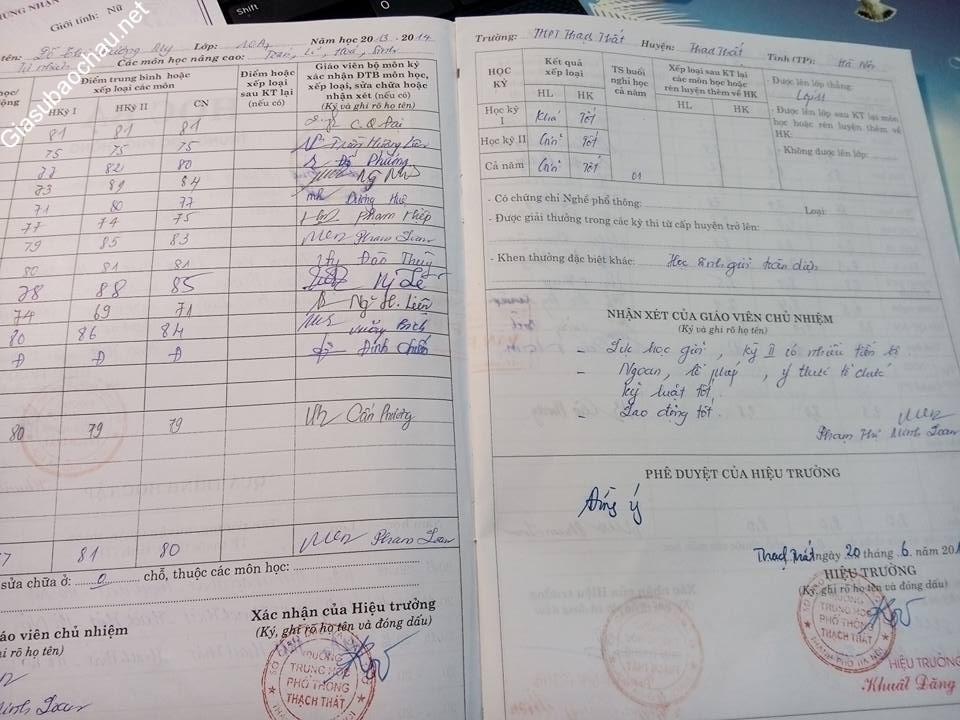 HỨNG NHẬN
Giới tính: Nữ
Giasubaochau.net
tên: Đỗ Lớp: 10A Năm học 2013 - 2014
Tự nhiên Các môn học nâng cao: Toán, Lí, Hoá, Sinh
học/
động
Điểm trung bình hoặc
xếp loại các môn
HKỳ I HKỳ II CN
Điểm hoặc
xếp loại
sau KT lại
(nếu có)
Giáo viên bộ môn ký
xác nhận ĐTB môn học,
xếp loại, sửa chữa hoặc
nhận xét (nếu có)
(Ký và ghi rõ họ tên)
81 81 81 C.Q Đại
75 75 75 Trần Hương
82 80 Phượng
73 89 84
71 80 77 Dương Huệ
77 74 75 Phạm Hiệp
79 85 83 Phạm Loan
80 81 81 Đào Thủy
78 88 85 Lê
74 69 71 Liên
80 86 84
Đ Đ Đ Đình Chiến
80 79 79 Cấn Phương
81 80 Phạm Loan
sửa chữa ở: 0 chỗ, thuộc các môn học:
iáo viên chủ nhiệm
hi rõ họ tên)
Minh Loan
Xác nhận của Hiệu trưởng
(Ký, ghi rõ họ tên và đóng dấu)
TRƯỜNG
TRUNG HỌC
PHỔ THÔNG
THẠCH THẤT
Trường: THPT Thạch Thất Huyện: Thạch Thất Tỉnh (TP): Hà Nội
HỌC
KỲ
Kết quả
xếp loại
HL HK
TS buổi
nghỉ học
cả năm
Xếp loại sau KT lại
các môn học hoặc
rèn luyện thêm về HK
HL HK
Học kỳ
I
Khá Tốt
Học kỳ II Giỏi Tốt
Cả năm Giỏi Tốt 01
Được lên lớp thẳng:
Lớp 11
- Được lên lớp sau KT lại
môn học hoặc rèn luyện thêm về
HK:
- Không được lên lớp:
- Có chứng chỉ Nghề phổ thông: Loại:
- Được giải thưởng trong các kỳ thi từ cấp huyện trở lên:
- Khen thưởng đặc biệt khác: Học sinh giỏi toàn diện
NHẬN XÉT CỦA GIÁO VIÊN CHỦ NHIỆM
(Ký và ghi rõ họ tên)
- Lực học giỏi, kỳ II có nhiều tiến bộ
- Ngoan, lễ phép, ý thức tổ chức
kỷ luật tốt.
- Lao động tốt.
Phạm Thị Minh Loan
PHÊ DUYỆT CỦA HIỆU TRƯỞNG
Đồng ý
Thạch Thất ngày 20 tháng 6 năm 201
HIỆU TRƯỞNG
(Ký, ghi rõ họ tên và đóng dấu)
TRƯỜNG
TRUNG HỌC
PHỔ THÔNG
THẠCH THẤT
THÀNH PHỐ HÀ NỘI
HIỆU TRƯỞNG
Khuất Đăng